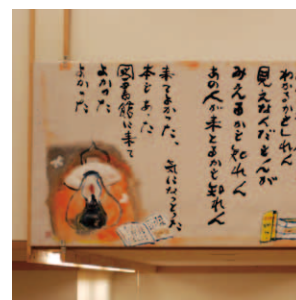 わかるかもしれん
見えなんだもんが
みえるかも知れん
あの人が来とるかも知れん
来てよかった、気になっとった
本もあった
図書館に来て
よかった
よかった